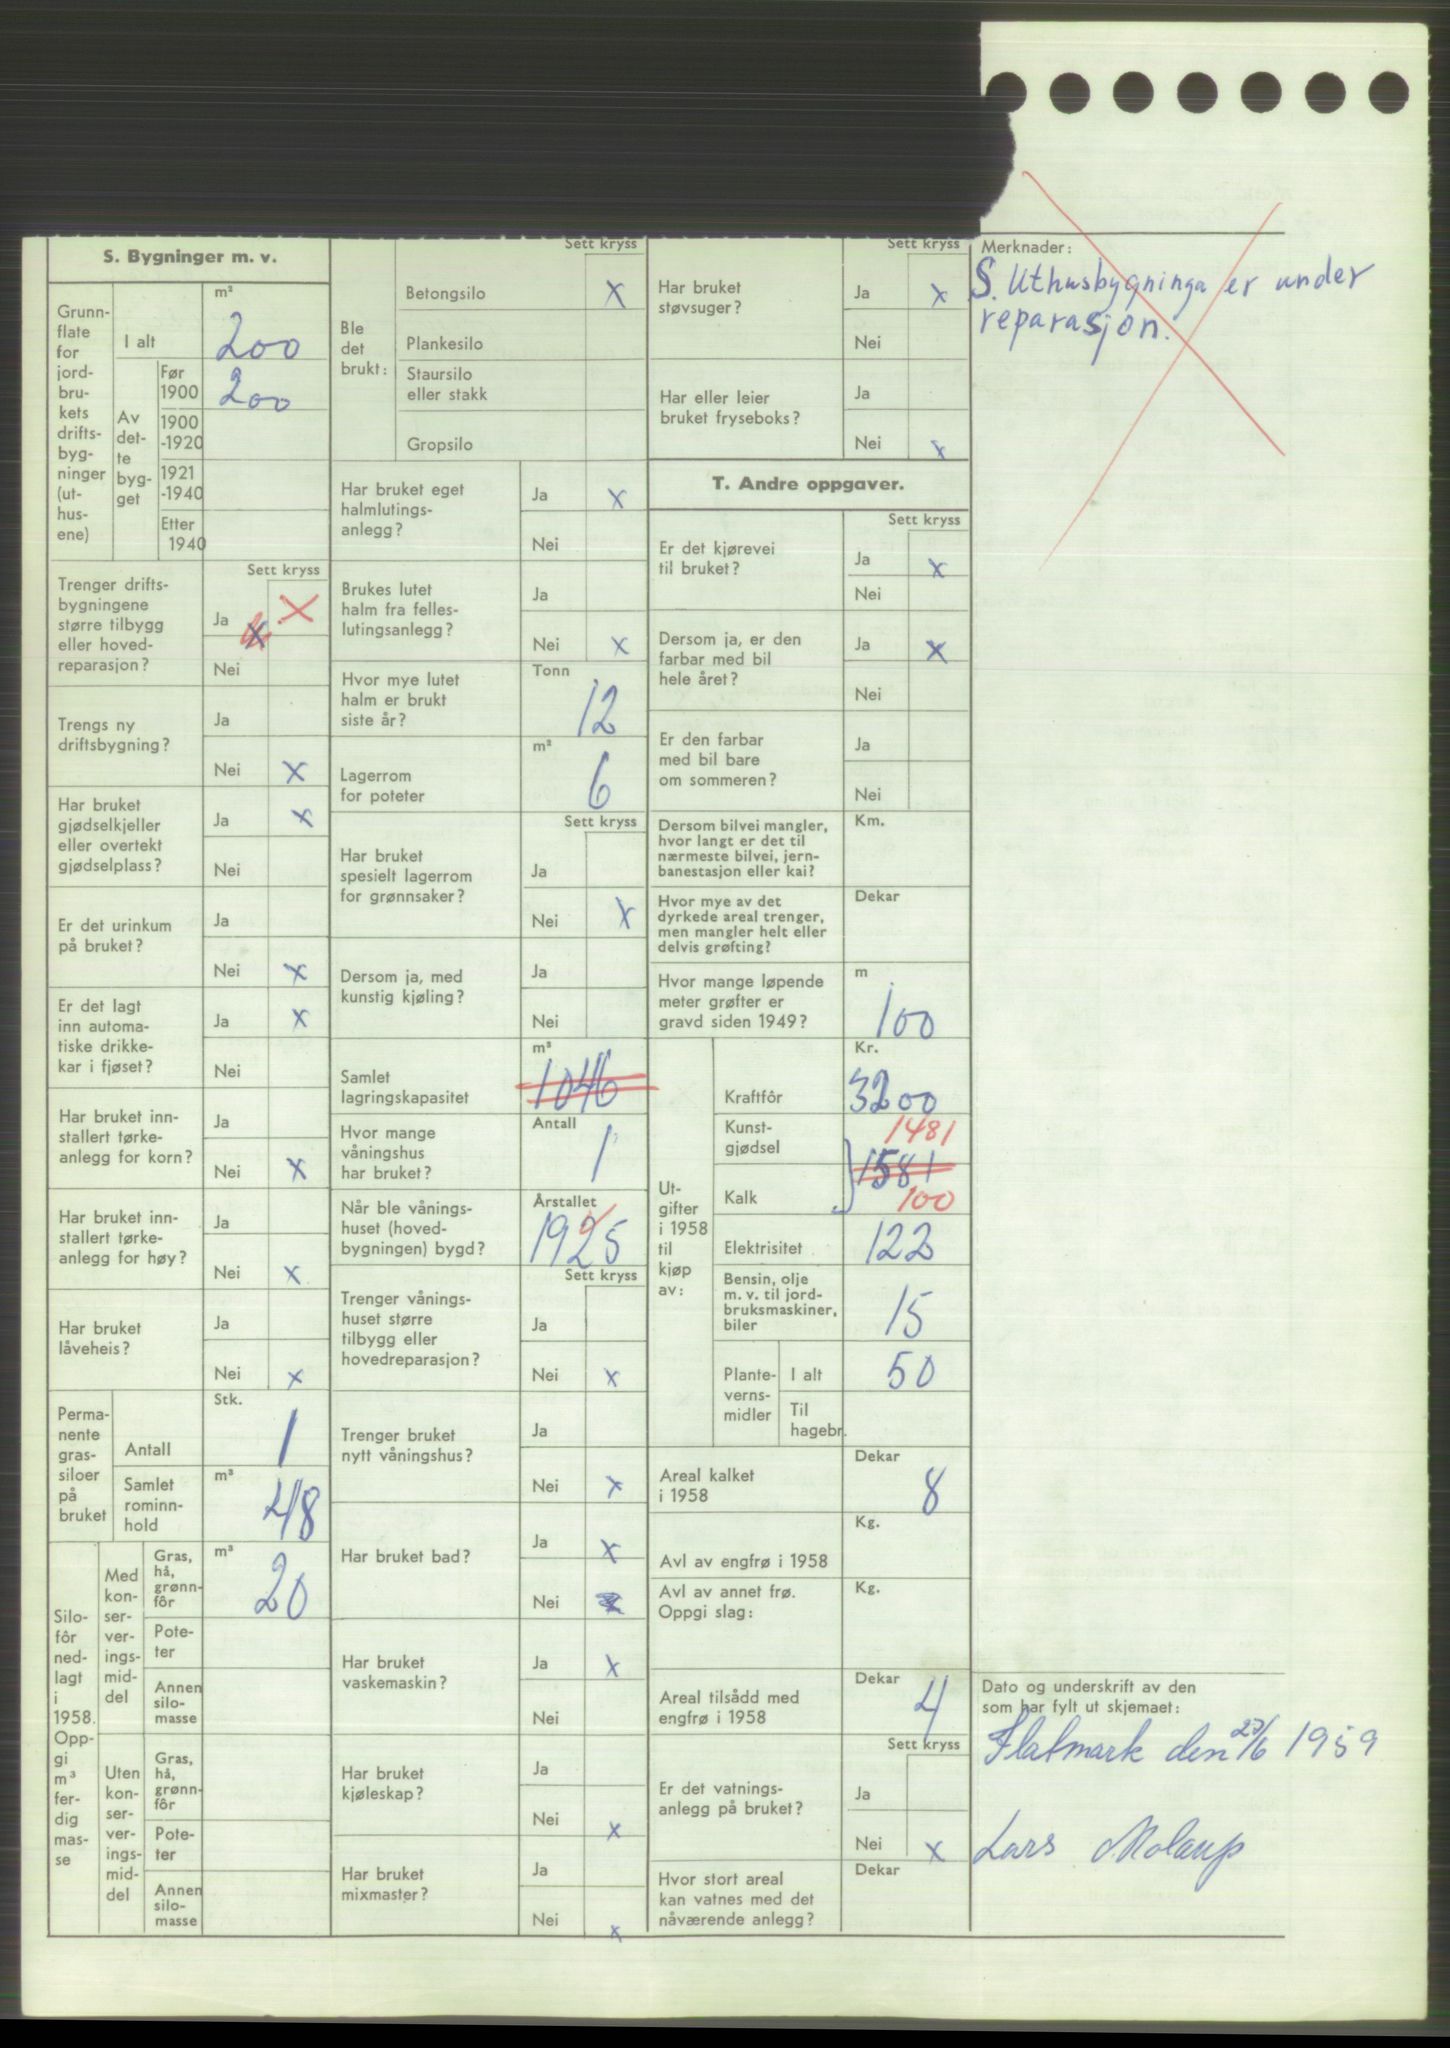 S. Bygninger m. v.
Grunn-
flate
for
jord-
bru-
kets
drifts-
byg-
ninger
(ut-
hus-
ene)
I alt
m²
200
Av
det-
te
byg-
get
Før
1900
200
1900
-1920
1921
-1940
Etter
1940
Sett kryss
Trenger drifts-
bygningene
større tilbygg
eller hoved-
reparasjon?
Ja
x
X
Nei
Trengs ny
driftsbygning?
Ja
Nei
x
Har bruket
gjødselkjeller
eller overtekt
gjødselplass?
Ja
x
Nei
Er det urinkum
på bruket?
Ja
Nei
x
Er det lagt
inn automa-
tiske drikke-
kar i fjøset?
Ja
x
Nei
Har bruket inn-
stallert tørke-
anlegg for korn?
Ja
Nei
x
Har bruket inn-
stallert tørke-
anlegg for høy?
Ja
Nei
x
Har bruket
låveheis?
Ja
Nei
x
Perma-
nente
gras-
siloer
på
bruket
Stk.
Antall
1
Samlet
rominn-
hold
m³
48
Silo-
fôr
ned-
lagt
i
1958.
Opp-
gi
m³
fer-
dig
mas-
se
Med
kon-
ser-
ver-
ings-
mid-
del
Gras,
hå,
grønn-
fôr
m³
20
Pote-
ter
Annen
silo-
masse
Uten
kon-
ser-
ver-
ings-
mid-
del
Gras,
hå,
grønn-
fôr
Pote-
ter
Annen
silo-
masse
Sett kryss
Ble
det
brukt:
Betongsilo
x
Plankesilo
Staursilo
eller stakk
Gropsilo
Har bruket eget
halmlutings-
anlegg?
Ja
x
Nei
Brukes lutet
halm fra felles-
lutingsanlegg?
Ja
Nei
x
Hvor mye lutet
halm er brukt
siste år?
Tonn
12
Lagerrom
for poteter
m³
6
Sett kryss
Har bruket
spesielt lagerrom
for grønnsaker?
Ja
Nei
x
Dersom ja, med
kunstig kjøling?
Ja
Nei
Samlet
lagringskapasitet
m³
1046
Hvor mange
våningshus
har bruket?
Antall
1
Når ble vånings-
huset (hoved-
bygningen) bygd?
Årstallet
1925
Sett kryss
Trenger vånings-
huset større
tilbygg eller
hovedreparasjon?
Ja
Nei
x
Trenger bruket
nytt våningshus?
Ja
Nei
x
Har bruket bad?
Ja
x
Nei
x
Har bruket
vaskemaskin?
Ja
x
Nei
Har bruket
kjøleskap?
Ja
Nei
x
Har bruket
mixmaster?
Ja
Nei
x
Sett kryss
Har bruket
støvsuger?
Ja
x
Nei
Har eller leier
bruket fryseboks?
Ja
Nei
x
T. Andre oppgaver.
Sett kryss
Er det kjørevei
til bruket?
Ja
x
Nei
Dersom ja, er den
farbar med bil
hele året?
Ja
x
Nei
Er den farbar
med bil bare
om sommeren?
Ja
Nei
Dersom bilvei mangler,
hvor langt er det til
nærmeste bilvei, jern-
banestasjon eller kai?
Km.
Hvor mye av det
dyrkede areal trenger,
men mangler helt eller
delvis grøfting?
Dekar
Hvor mange løpende
meter grøfter er
gravd siden 1949?
m
100
Ut-
gifter
i 1958
til
kjøp
av:
Kr.
Kraftfôr
3200
Kunst-
gjødsel
1481
1581
Kalk
100
Elektrisitet
122
Bensin, olje
m. v. til jord-
bruksmaskiner,
biler
15
Plante-
verns-
midler
I alt
50
Til
hagebr.
Areal kalket
i 1958
Dekar
8
Avl av engfrø i 1958
Kg.
Avl av annet frø.
Oppgi slag:
Kg.
Areal tilsådd med
engfrø i 1958
Dekar
4
Sett kryss
Er det vatnings-
anlegg på bruket?
Ja
Nei
x
Hvor stort areal
kan vatnes med det
nåværende anlegg?
Dekar
Merknader:
S. Uthusbygninga er under
reparasjon.
Dato og underskrift av den
som har fylt ut skjemaet:
Flatmark den 23/6 1959
Lars